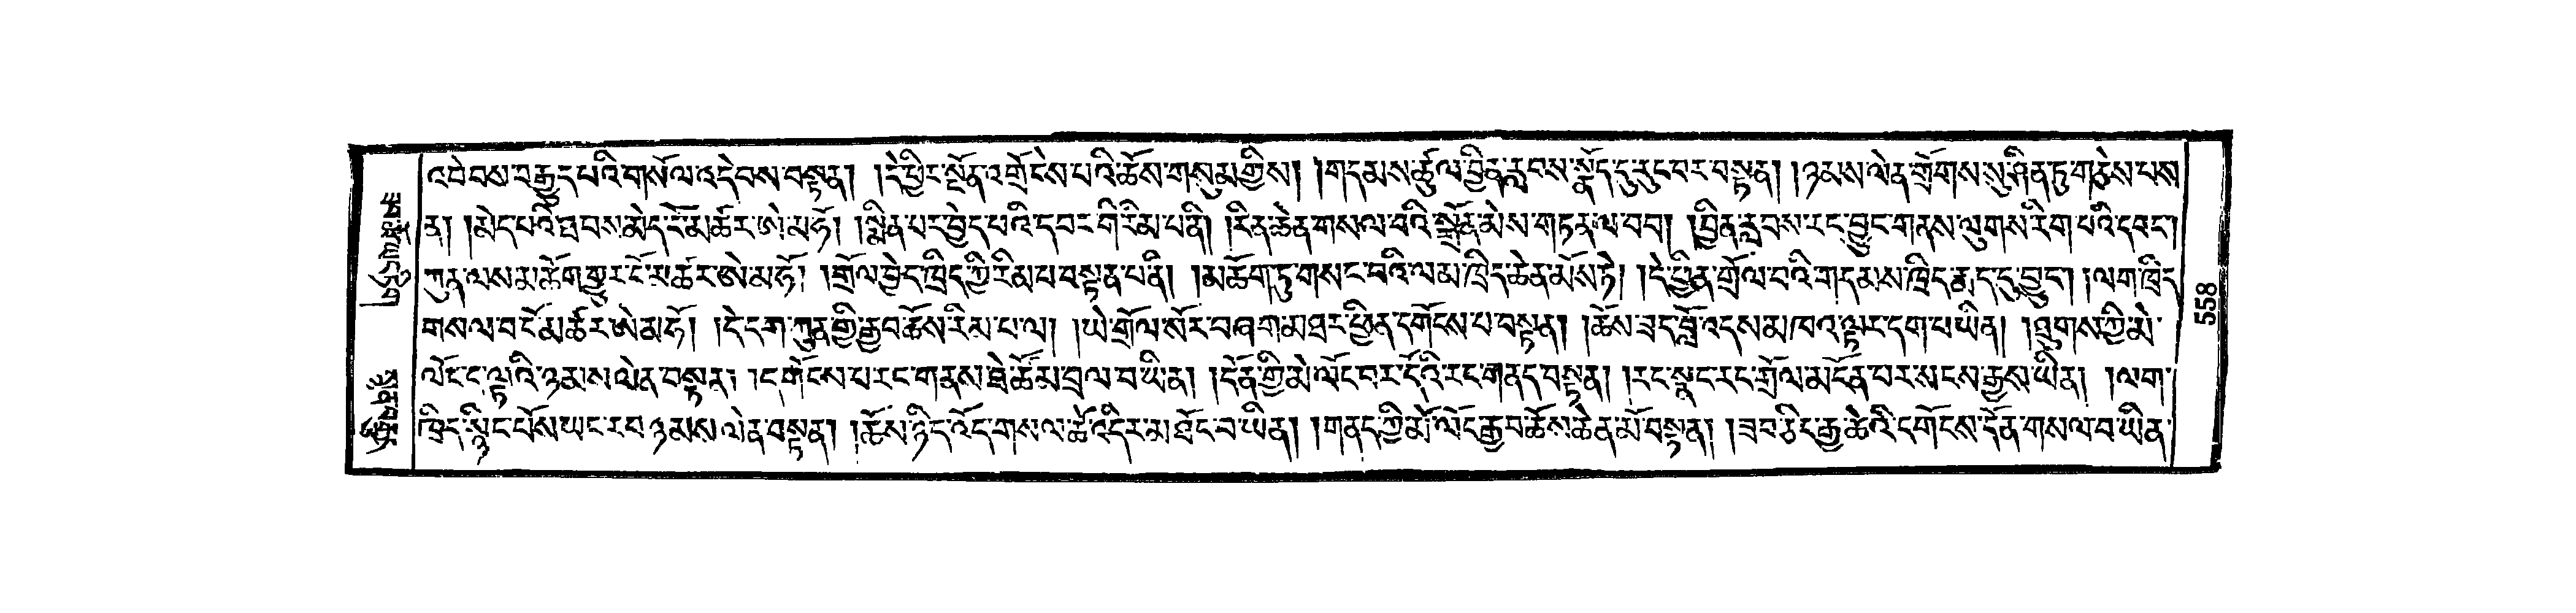 འབེབས་བརྒྱུད་པའི་གསོལ་འདེབས་བསྟན། །དེ་ཕྱིར་སྔོན་འགྲོ་ངེས་པའི་ཆོས་གསུམ་གྱིས། །གདམས་ཚུལ་བྱིན་རླབས་སྣོད་དུ་རུང་བར་བསྟན། །ཉམས་ལེན་གྲོགས་སུ་ཤིན་ཏུ་གཅེས་པས
ན། །མེད་པའི་ཐབས་མེད་ངོ་མཚར་ཨེ་མ་ཧོ། །སྨིན་པར་བྱེད་པའི་དབང་གི་རིམ་པ་ནི། །རིན་ཆེན་གསལ་བའི་སྒྲོན་མེས་གཏན་ལ་བབ། །བྱིན་རླབས་རང་བྱུང་གནས་ལུགས་རིག་པའི་དབང་།
ཀུན་ལས་མཆོག་གྱུར་ངོ་མཚར་ཨེ་མ་ཧོ། །གྲོལ་བྱེད་ཁྲིད་ཀྱི་རིམ་པ་བསྟན་པ་ནི། །མཆོག་ཏུ་གསང་བའི་ལམ་ཁྲིད་ཆེན་མོས་ཏེ། །དེ་བྱིན་གྲོལ་བའི་གདམས་ཁྲིད་རྨད་དུ་བྱུང་། །ལག་ཁྲིད
གསལ་བ་ངོ་མཚར་ཨེ་མ་ཧོ། །དེ་དག་ཀུན་གྱི་རྒྱབ་ཆོས་རིམ་པ་ལ། །ཡེ་གྲོལ་སོར་བཞག་མཐར་ཕྱིན་དགོངས་པ་བསྟན། །ཆོས་ཟད་བློ་འདས་མཁའ་ལྟར་དག་པ་ཡིན། །ཐུགས་ཀྱི་མེ་
ལོང་ང་ལྟའི་ཉམས་ལེན་བསྟན། །དགོངས་པ་རང་གནས་ཐེ་ཚོམ་བྲལ་བ་ཡིན། །དོན་གྱི་མེ་ལོང་བར་དོའི་རང་གནད་བསྟན། །རང་སྣང་རང་གྲོལ་མངོན་པར་སངས་རྒྱས་ཡིན། །ལག་
ཁྲིད་སྙིང་པོས་ཡང་རབ་ཉམས་ལེན་བསྟན། །ཆོས་ཉིད་འོད་གསལ་ཚེ་འདིར་མཐོང་བ་ཡིན། །གནད་ཀྱི་མེ་ལོང་རྒྱབ་ཆོས་ཆེན་མོ་བསྟན། །ཟབ་ཅིང་རྒྱ་ཆེའི་དགོངས་དོན་གསལ་བ་ཡིན་
558